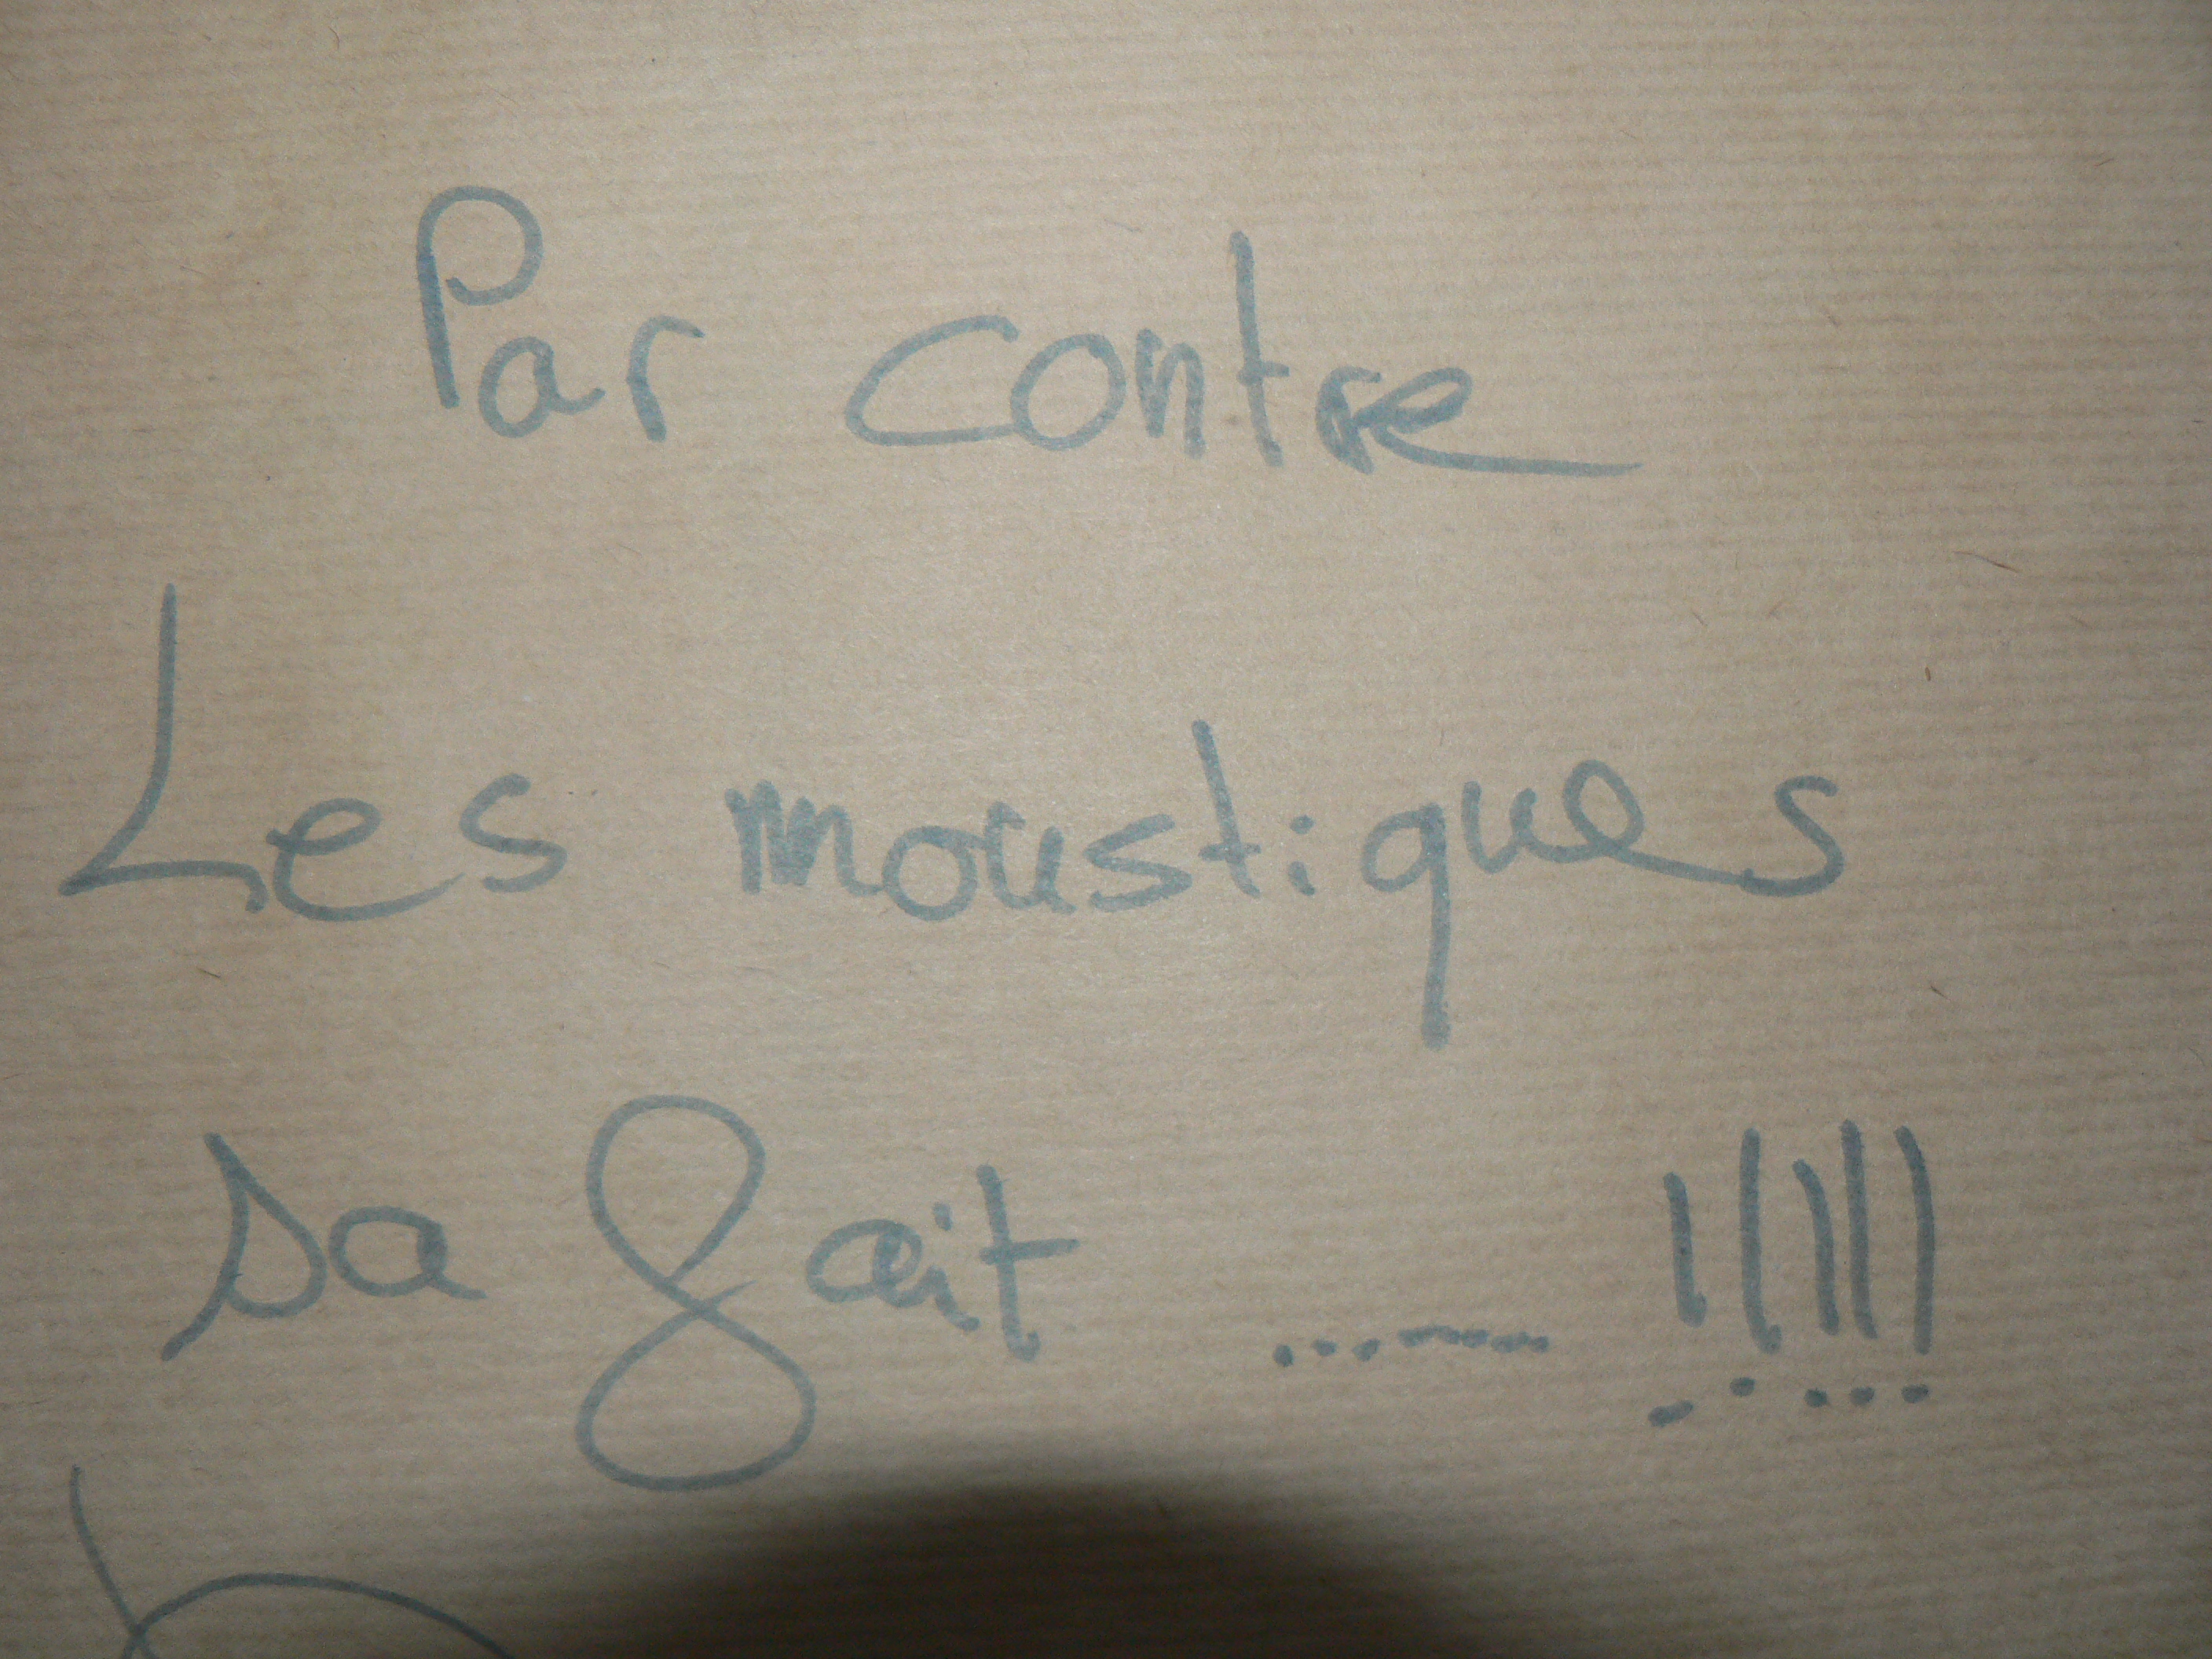 Par contre
Les moustiques
sa fait ......... !!!!!